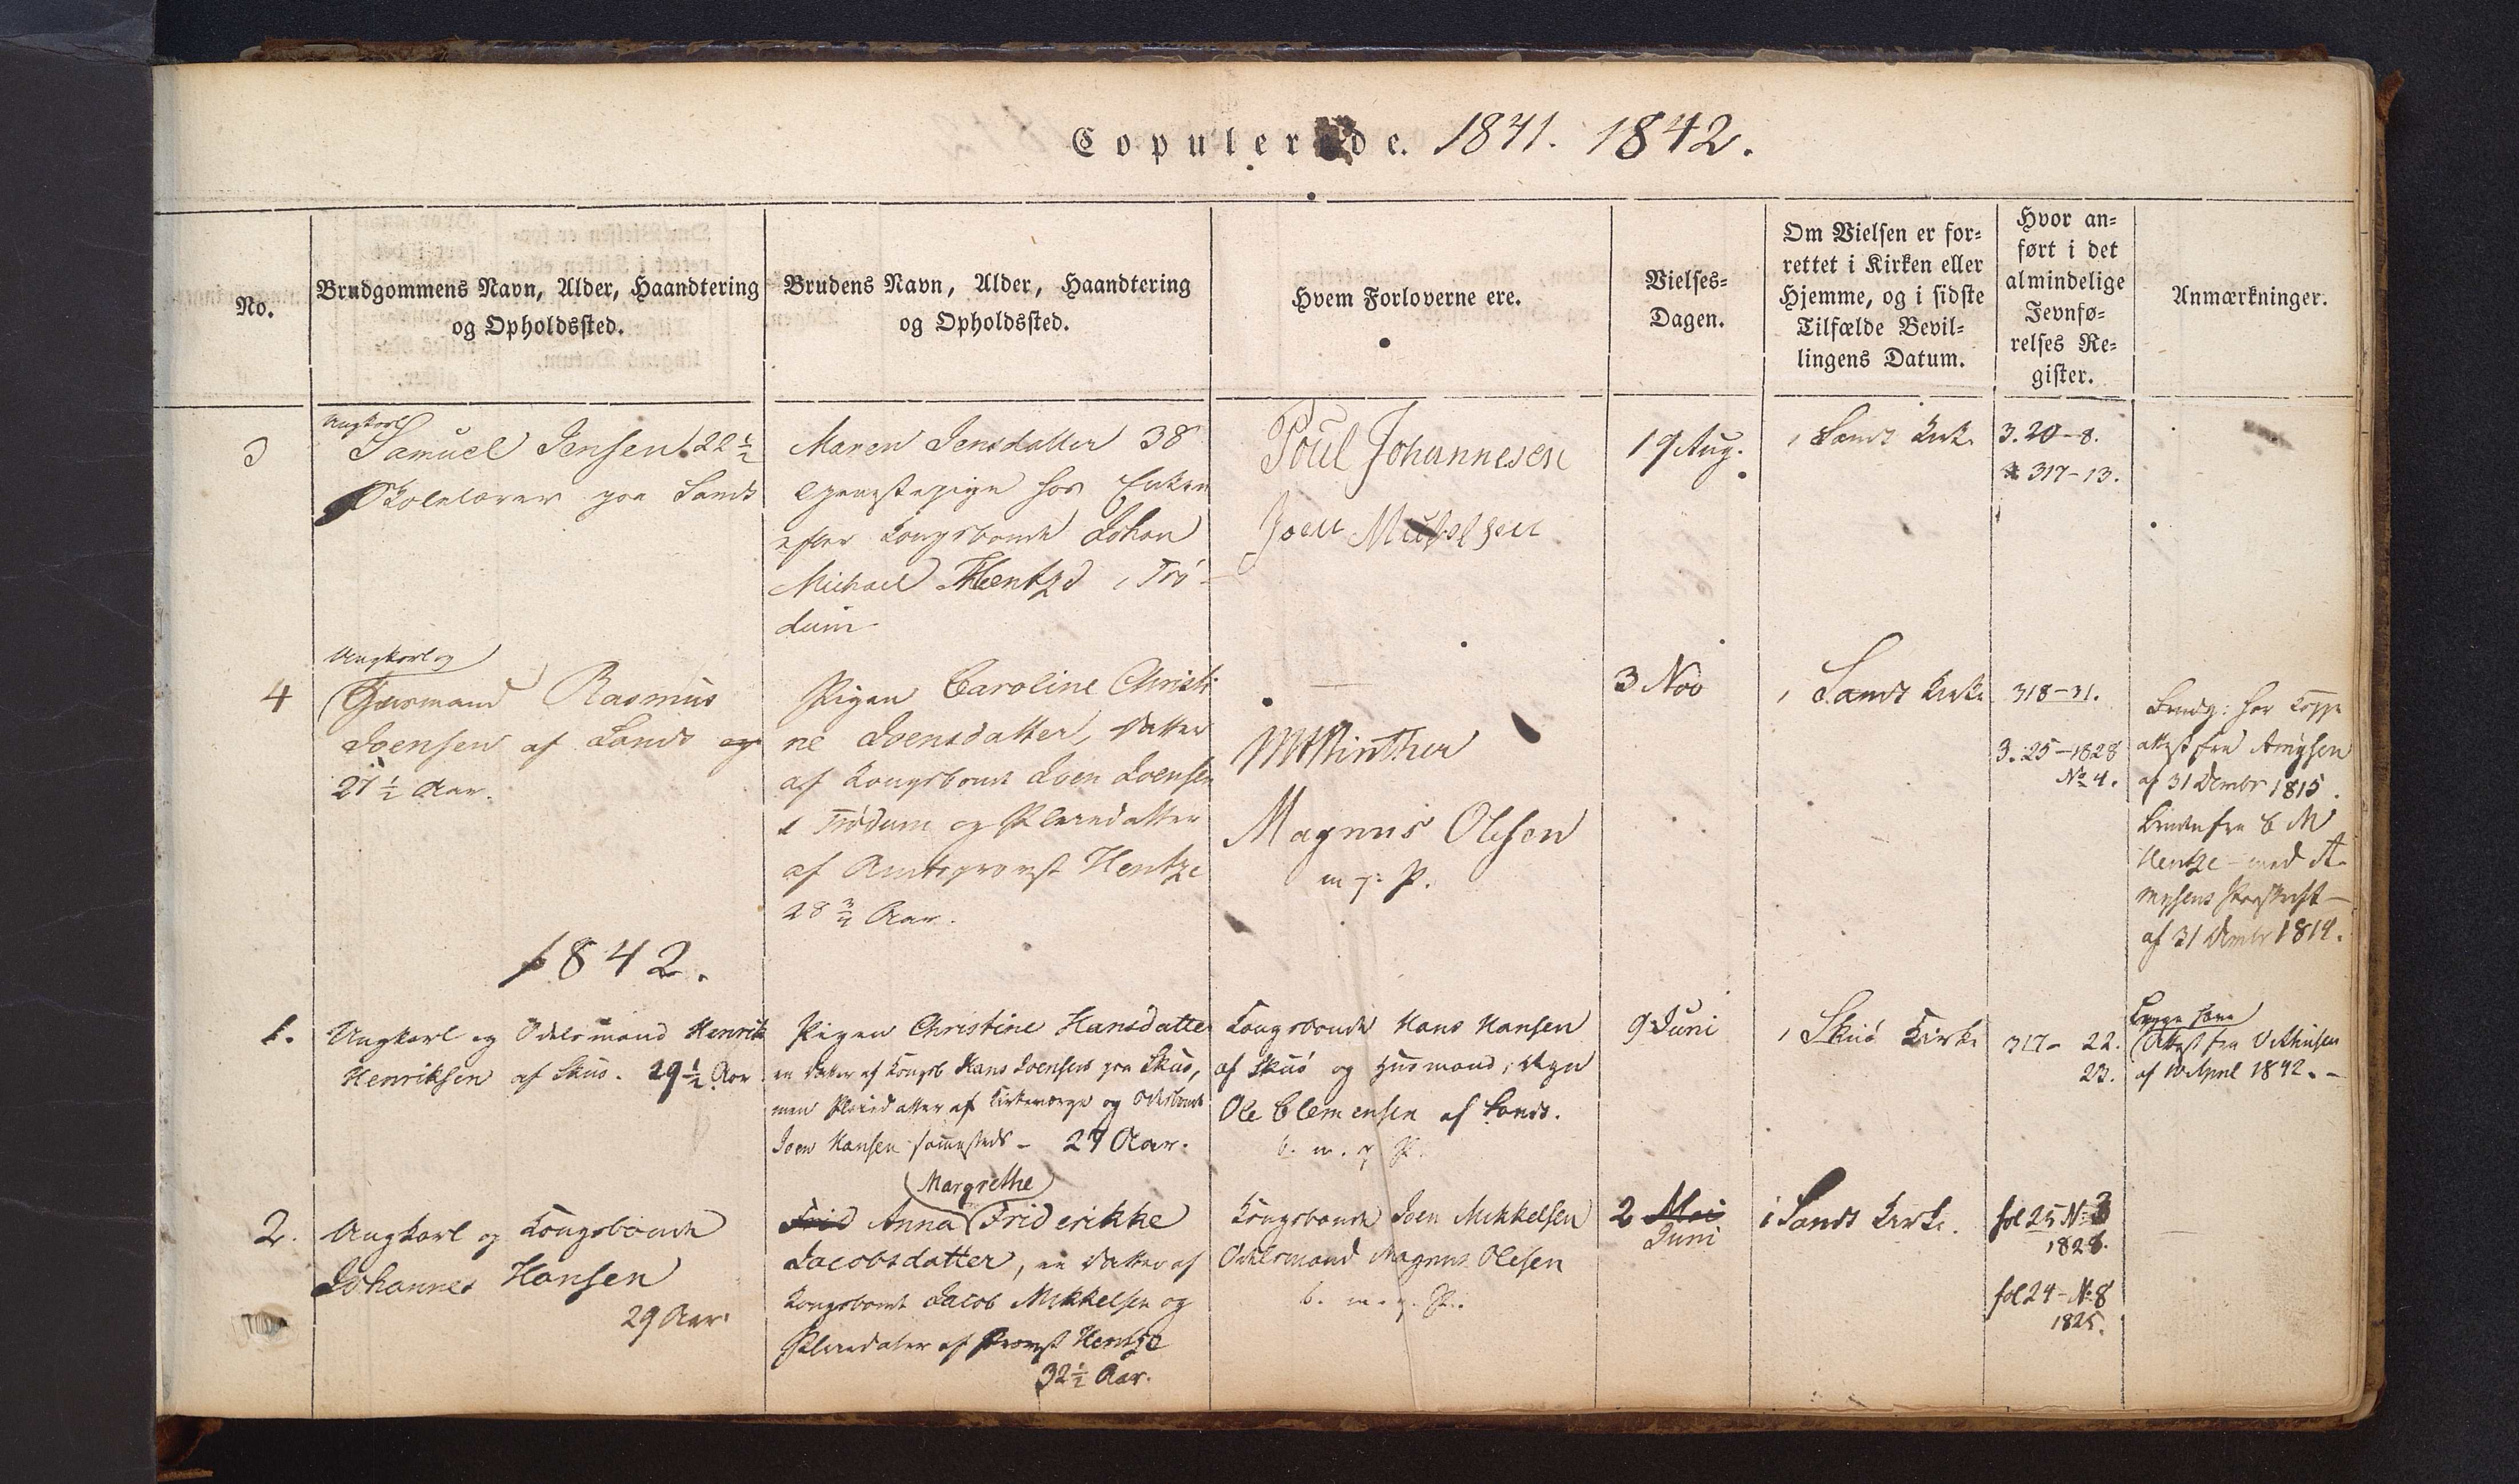 Copulerede. 1841. 1842.
No.
Brudgommens Navn, Alder, Haandtering
og Opholdssted.
Brudens Navn, Alder, Haandtering
og Opholdssted.
Hvem Forloverne ere.
Vielses-
Dagen.
Om Vielsen er for-
rettet i Kirken eller
Hjemme, og i sidste
Tilfælde Bevil-
lingens Datum.
Hvor an-
ført i det
almindelige
Jevnfø-
relses Re-
gister.
Anmærkninger.
3
Ungkarl
Samuel Jensen 22 1/2
Skolelærer paa Sand
Maren Jensdatter 38
tjenestepige hos Enken
efter Kongsbonde Johan
Michael Hentze i Trö-
dum
Poul Johannesen
Joen Mikkelsen
19 Aug.
i Sands Kirke
3. 20-8.
317-13.
4
Ungkarl og
Huusmand Rasmus
Joensen af Sand
27 1/2 Aar.
Pigen Caroline Christi
ne Joensdatter, Datter
af Kongsbonde Joen Joensen
i Trödum og Pleiedatter
af Amtsprovst Hentze
28 3/4 Aar.
Winther
Magnus Olesen
m. p. P.
3 Nov
i Sands Kirke
318-31.
3. 25-1828
No 4.
Brudg: har Koppe
attest fra
af 31 Decembr 1815.
Bruden fra C M
Hentze med
af 31 Decembr 1814.
1842.
1.
Ungkarl og Odelsmand Henrik
Henriksen af Skuö. 29 1/2 Aar
Pigen Christine Hansdatter
en Datter af Kongsb Hans Joensen paa Skuö,
men Pleiedatter af Kirkeværge og Odelsbonde
Joen Hansen sammesteds - 27 Aar.
Kongsbonde Hans Hansen
af Skuö og Huusmand, Degn
Ole Clemensen af Sand.
b. m. p. P.
9 Juni
i Skuö Kirke
317- 22.
23.
Begge have
Attest fra
af 10 April 1842. -
2.
Ungkarl og Kongsbonde
Johannes Hansen
29 Aar.
Margrethe
Frid Anna Friderikke
Jacobsdatter, en Datter af
Kongsbonde Jacob Mikkelsen og
Pleiedatter af Provst Hentze
32 1/2 Aar.
Kongsbonde Joen Mikkelsen
Odelsmand Magnus Olesen
b. m. p. P.
2 Mai
Juni
i Sands Kirke.
fol 25 No 3
1828.
fol 24 - No 8
1825.